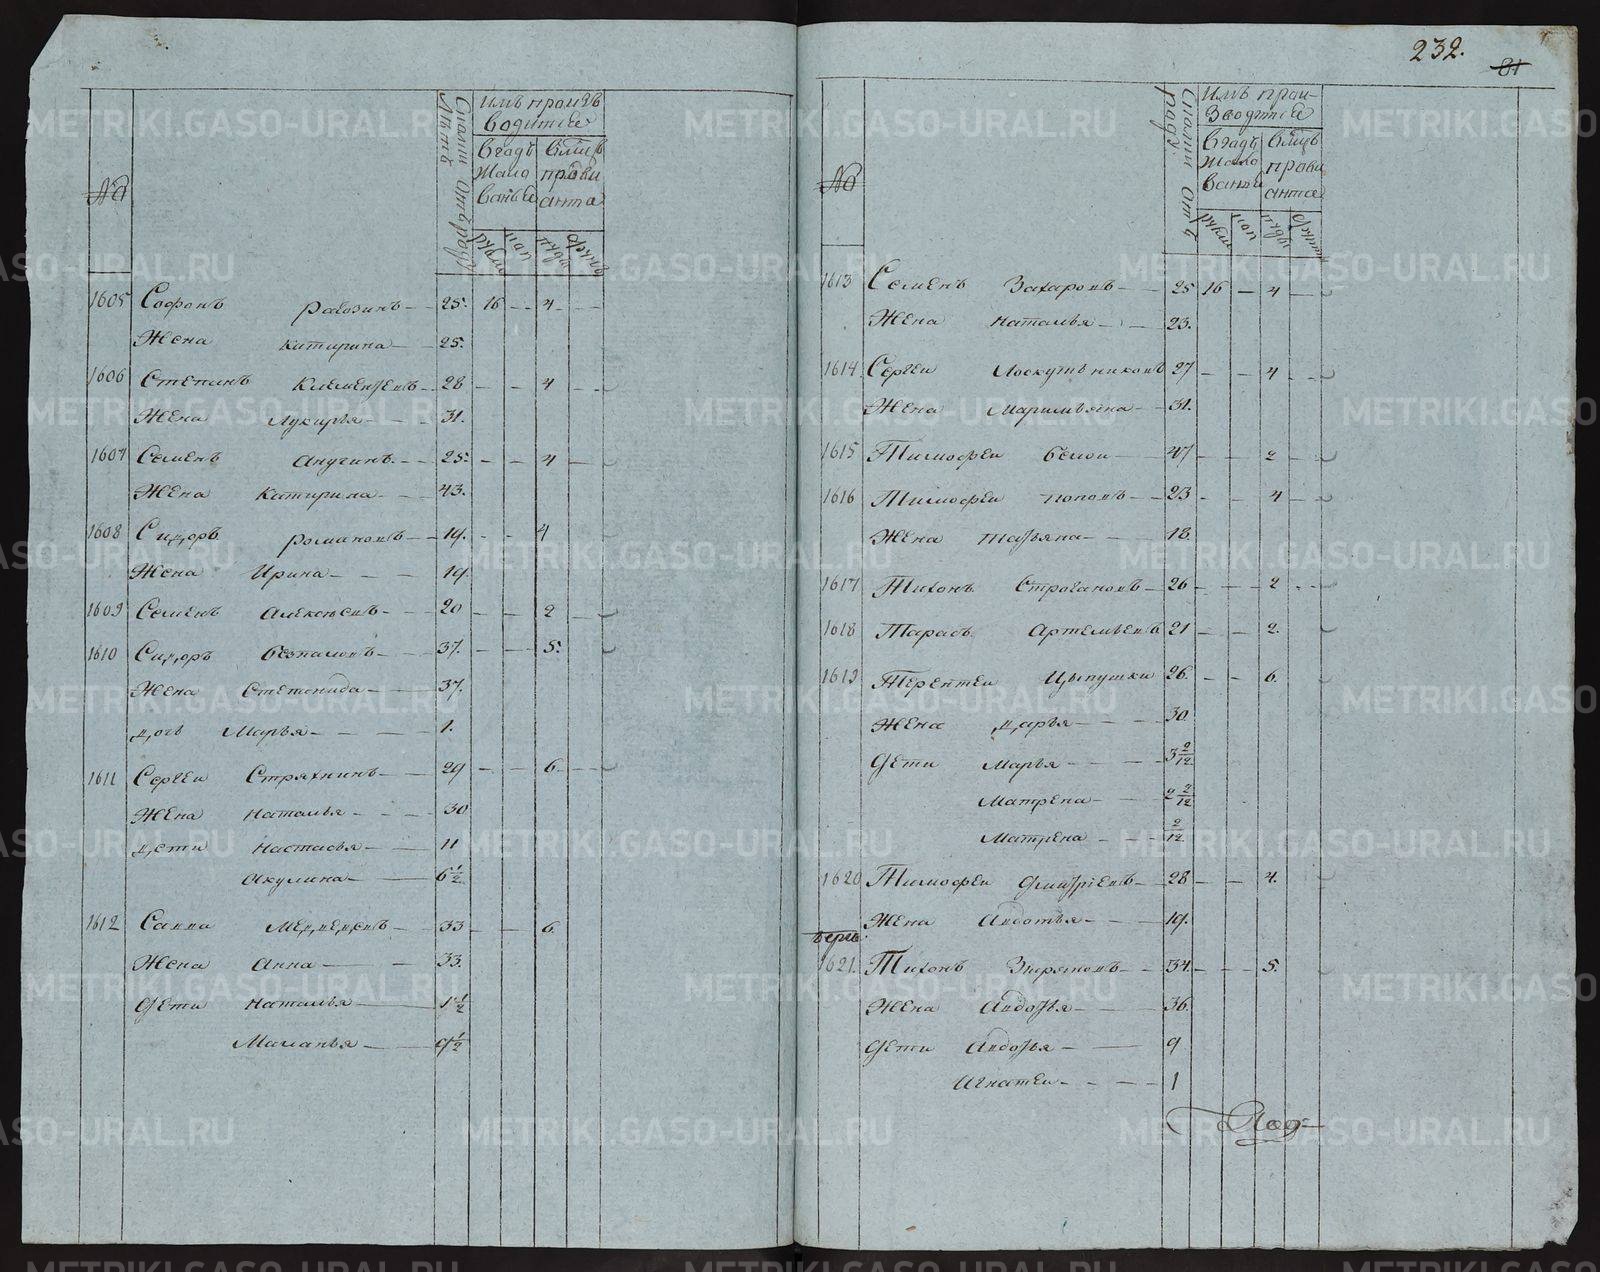 232.
81
№
Сполна отъ роду Лѣтъ
имъ произъ
водится
въ годъ
Жало
ванья
въ мѣцъ
прови
анта
рубли
коп
пуды
фунты
1605 Софонъ Рагозинъ 25. 16 4
Жена Катирина 25.
1606 Степанъ Клементьевъ 28 4
Жена Лукирья 31.
1607 Семенъ Анучинъ 25. 4
Жена Катирина 43.
1608 Сидоръ Романовъ 19. 4
Жена Ирина 19.
1609 Семенъ Алексѣевъ 20 2
1610 Сидоръ Безпаловъ 37. 5.
Жена Степанида 37.
дочь Марья 1.
1611 Сергеи Стряхнинъ 29 6.
Жена Наталья 30
дети Настасья 11
Акулина 6 1/2
1612 Савва Медведевъ 33 6.
Жена Анна 33.
Дети Наталья 1 1/2
Маланья 9 1/2
№
Сполна отъ роду
имъ прои
зводится
въ годъ
Жало
ванья
въ мѣцъ
прови
анта
рубли
коп
пуды
фунты
1613 Семенъ Захаровъ 25 16 4
Жена Наталья 23.
1614 Сергеи Лоскутниковъ 27 4
Жена Маримьяна 31.
1615 Тимофеи Белои 47 2
1616 Тимофеи Поповъ 23 4
Жена Татьяна 18.
1617 Тихонъ Строгановъ 26 2
1618 Тарасъ Артемьевъ 21 2.
1619 Терентеи Цыпушки 26. 6.
Жена Дарья 30
Дети Марья 3 2/12
Матрена 2 2/12
Матрена 2/12
1620 Тимофеи Дмитріевъ 28 4.
Жена Авдотья 19.
1621. Тихонъ Зыряновъ 34. 5.
Жена Авдотья 36.
Дети Авдотья 9
Игнатеи 1
METRIKI.GASO-URAL.RU